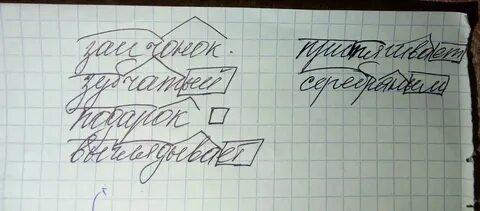 зайчонок.
зубчатый
подарок
выглядывает
притягивает
серебряный